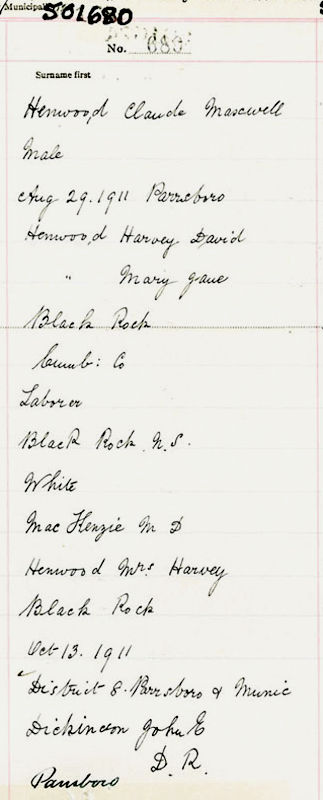 Municipal
501680
No. 680
Surname first
Henwood Claude Maxcwell
Male
Aug 29. 1911 Parrsboro
Henwood Harvey David
" Mary Jane
Black Rock
Cumb: Co
Laborer
Black Rock N.S.
White
MacKenzie M D
Henwood Mrs Harvey
Black Rock
Oct 13. 1911
District 8. Parrsboro & Munic
Dickinson John E
D. R.
Parrsboro